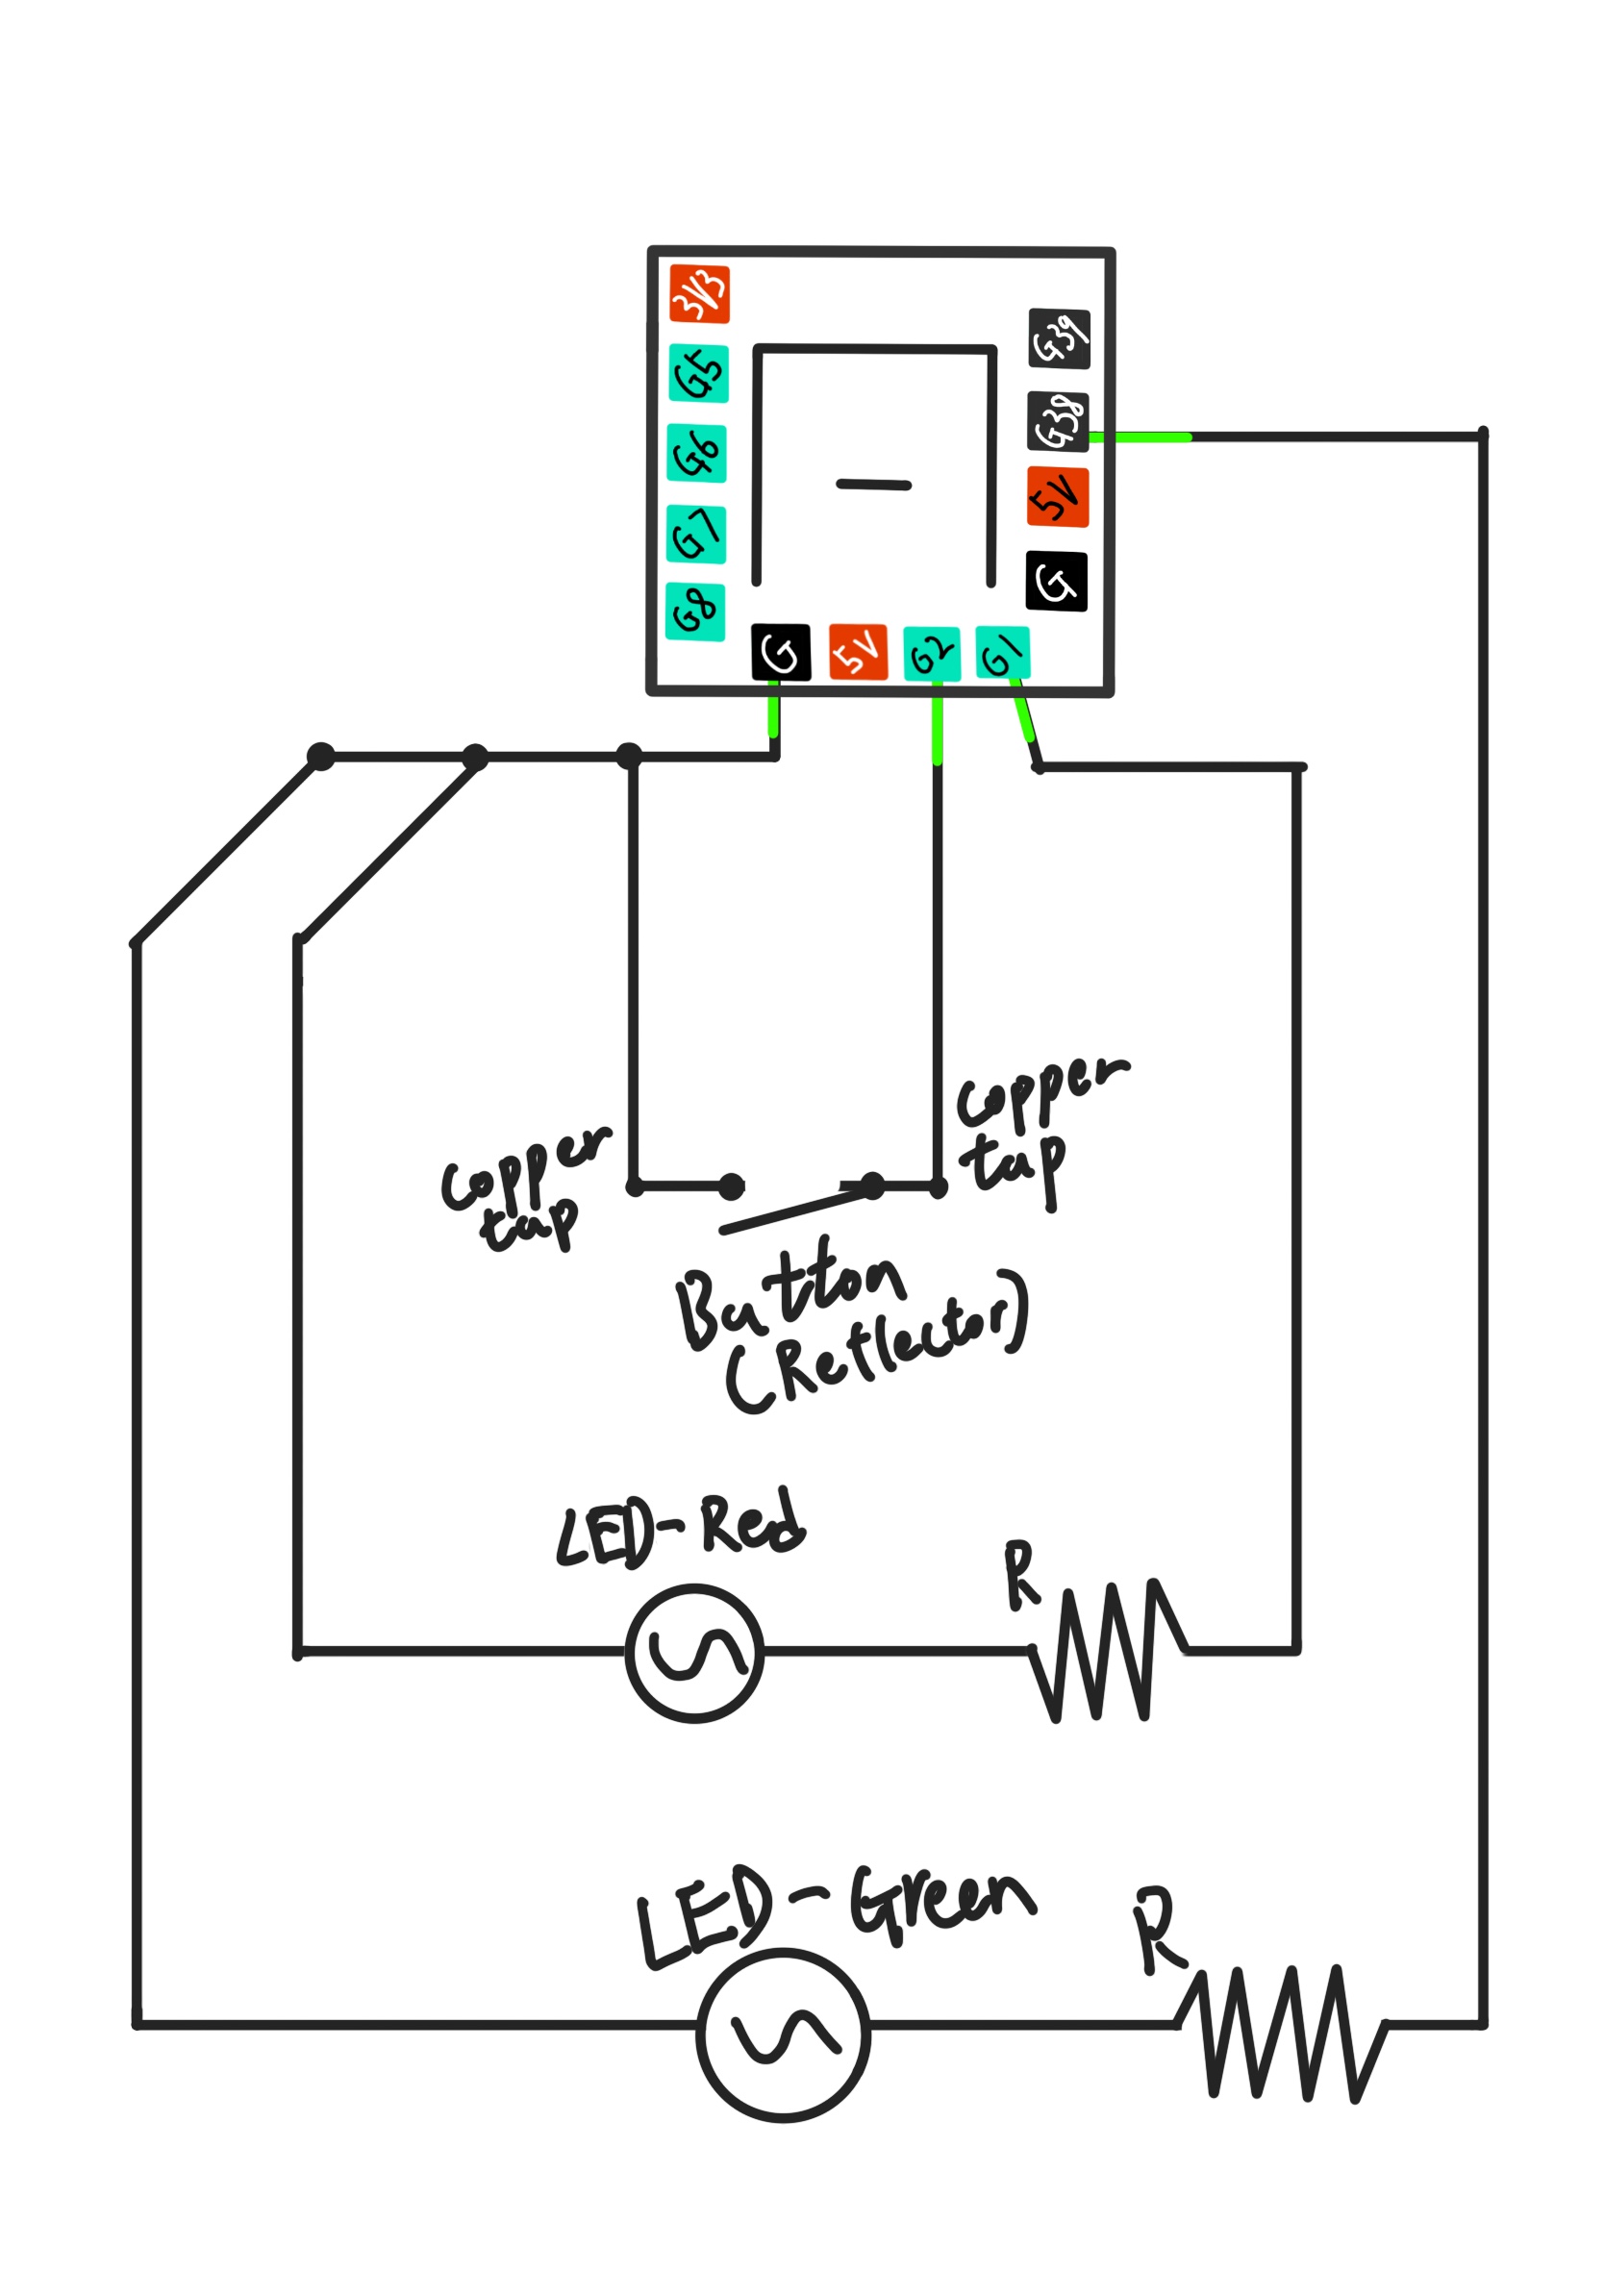 3V3
G5
G6
G7
G8
G39
G38
5V
G
G
5V
G2
G1
Copper
tap
Copper
tap
Button
(Reflector)
LED-Red
R
LED-Green
R